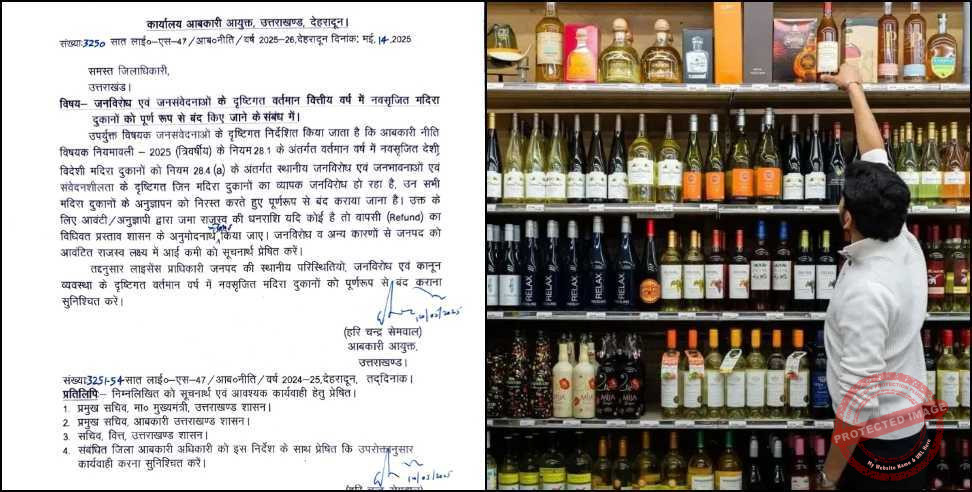 कार्यालय आबकारी आयुक्त, उत्तराखण्ड, देहरादून।
संख्याः3250 सात लाई०–एस–47/आब०नीति/वर्ष 2025–26,देहरादून दिनांक: मई, 14 ,2025
समस्त जिलाधिकारी,
उत्तराखण्ड।
विषय– जनविरोध एवं जनसंवेदनाओं के दृष्टिगत वर्तमान वित्तीय वर्ष में नवसृजित मदिरा
दुकानों को पूर्ण रूप से बंद किए जाने के संबंध में।
उपर्युक्त विषयक जनसंवेदनाओ के दृष्टिगत निर्देशित किया जाता है कि आबकारी नीति
विषयक नियमावली – 2025 (त्रिवर्षीय) के नियम 28.1 के अंतर्गत वर्तमान वर्ष में नवसृजित देशी
विदेशी मदिरा दुकानों को नियम 28.4 (a) के अंतर्गत स्थानीय जनविरोध एवं जनभावनाओं एवं
संवेदनशीलता के दृष्टिगत जिन मदिरा दुकानों का व्यापक जनविरोध हो रहा है, उन सभी
मदिरा दुकानों के अनुज्ञापन को निरस्त करते हुए पूर्णरूप से बंद किया जाना है। उक्त के
लिए आवंटी/अनुज्ञापी द्वारा जमा राजस्व की धनराशि यदि कोई है तो वापसी (Refund) का
विधिवत प्रस्ताव शासन के अनुमोदनार्थ किया जाए। जनविरोध व अन्य कारणों से जनपद को
आवंटित राजस्व लक्ष्य में आई कमी को सूचनार्थ प्रेषित करें।
तद्दनुसार लाइसेंस प्राधिकारी जनपद की स्थानीय परिस्थितियो, जनविरोध एवं कानून
व्यवस्था के दृष्टिगत वर्तमान वर्ष में नवसृजित मदिरा दुकानों को पूर्णरूप से बंद कराना
सुनिश्चित करें।
(हरि चन्द्र सेमवाल)
आबकारी आयुक्त,
उत्तराखण्ड।
संख्याः3251-54 सात लाई०–एस–47/आब०नीति/वर्ष 2024–25,देहरादून, तद्दिनाक।
प्रतिलिपिः– निम्नलिखित को सूचनार्थ एवं आवश्यक कार्यवाही हेतु प्रेषित।
1. प्रमुख सचिव, मा० मुख्यमंत्री, उत्तराखण्ड शासन।
2. प्रमुख सचिव, आबकारी उत्तराखण्ड शासन।
3. सचिव, वित्त, उत्तराखण्ड शासन।
4. संबंधित जिला आबकारी अधिकारी को इस निर्देश के साथ प्रेषित कि उपरोक्तानुसार
कार्यवाही करना सुनिश्चित करें।
RELAX
RELAX
RELAX
RELAX
MIA
PROTECTED IMAGE
My Website Name & URL Here